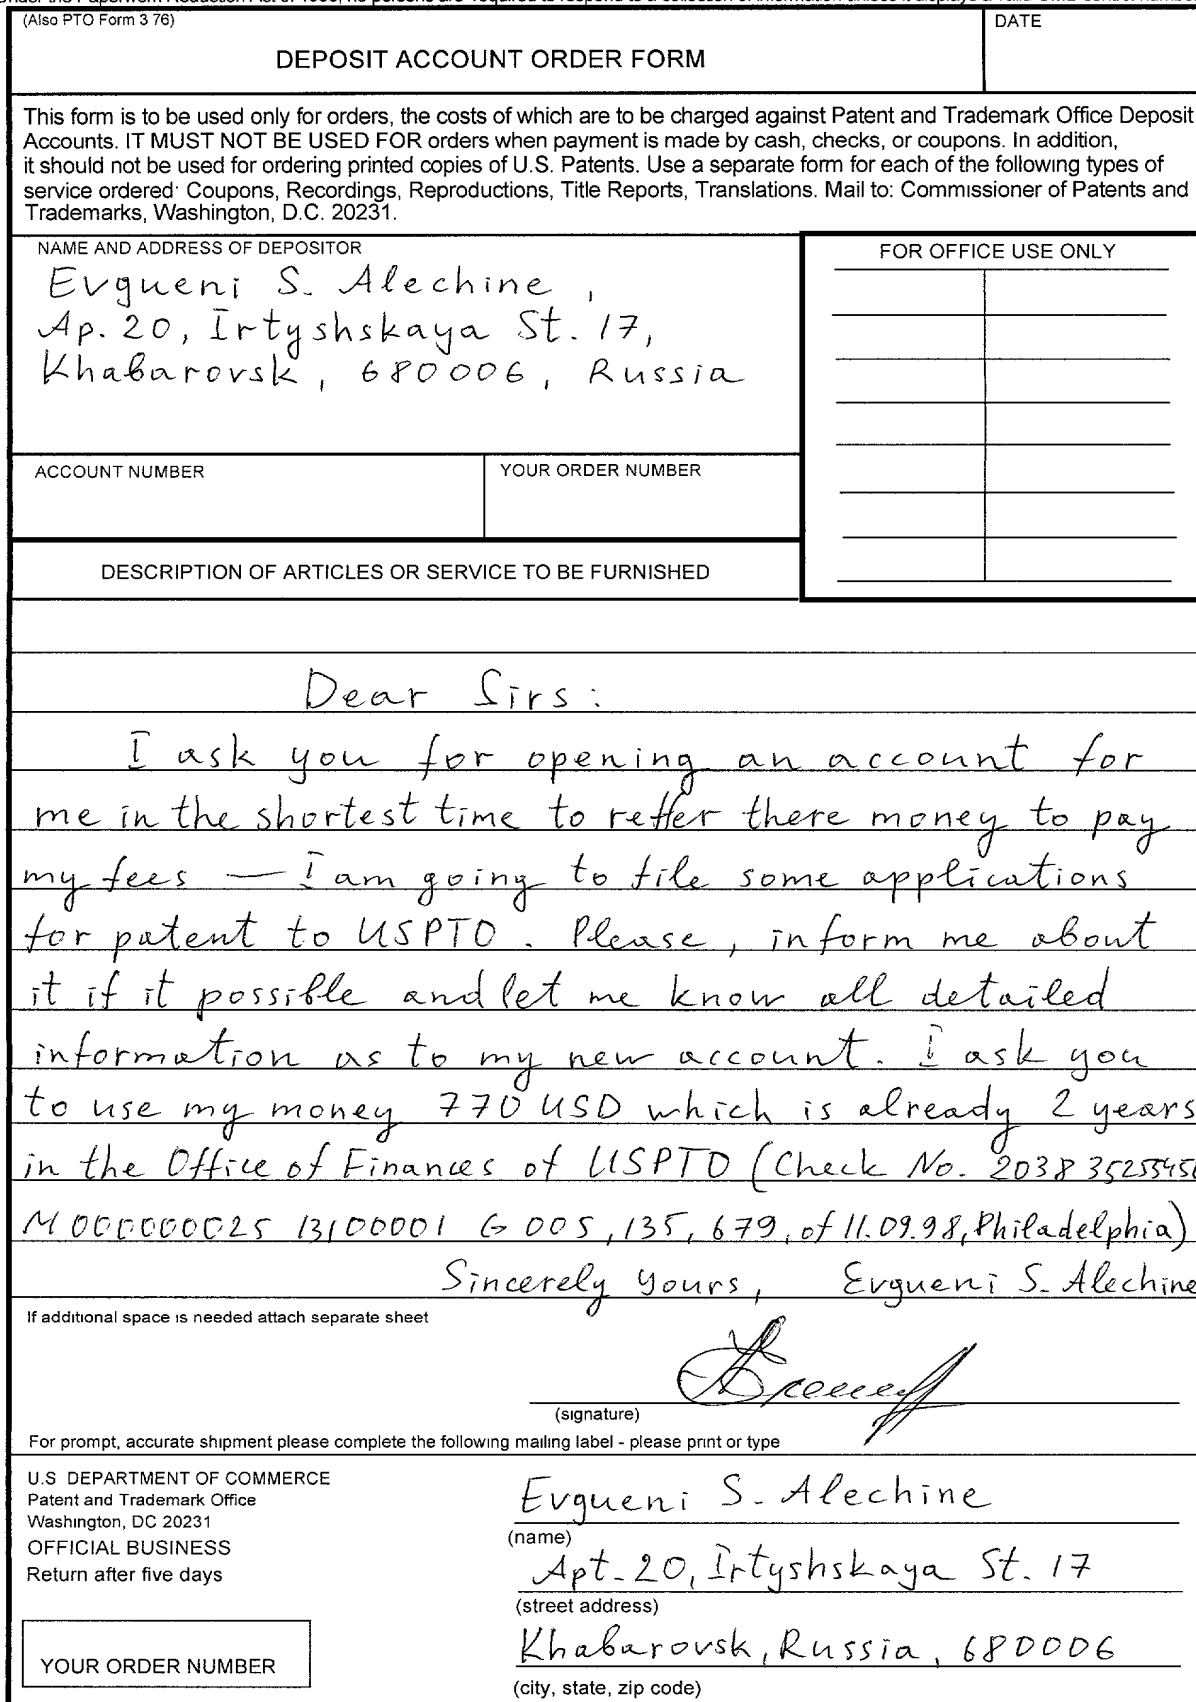 (Also PTO Form 3 76)
DATE
DEPOSIT ACCOUNT ORDER FORM
This form is to be used only for orders, the costs of which are to be charged against Patent and Trademark Office Deposit
Accounts. IT MUST NOT BE USED FOR orders when payment is made by cash, checks, or coupons. In addition,
it should not be used for ordering printed copies of U.S. Patents. Use a separate form for each of the following types of
service ordered: Coupons, Recordings, Reproductions, Title Reports, Translations. Mail to: Commissioner of Patents and
Trademarks, Washington, D.C. 20231.
NAME AND ADDRESS OF DEPOSITOR
Evgueni S. Alechine,
Ap. 20, Irtyshskaya St. 17,
Khabarovsk, 680006, Russia
FOR OFFICE USE ONLY
ACCOUNT NUMBER
YOUR ORDER NUMBER
DESCRIPTION OF ARTICLES OR SERVICE TO BE FURNISHED
Dear Sirs:
I ask you for opening an account for
me in the shortest time to reffer there money to pay
my fees — I am going to file some applications
for patent to USPTO. Please, inform me about
it if it possible and let me know all detailed
information as to my new account. I ask you
to use my money 770 USD which is already 2 years
in the Office of Finances of USPTO (Check No. 2038
M 000000025 13100001 G 005,135,679, of 11.09.98, Philadelphia)
Sincerely yours, Evgueni S. Alechine
If additional space is needed attach separate sheet
(signature)
For prompt, accurate shipment please complete the following mailing label - please print or type
U.S DEPARTMENT OF COMMERCE
Patent and Trademark Office
Washington, DC 20231
OFFICIAL BUSINESS
Return after five days
YOUR ORDER NUMBER
Evgueni S. Alechine
(name)
Apt. 20, Irtyshskaya St. 17
(street address)
Khabarovsk, Russia, 680006
(city, state, zip code)